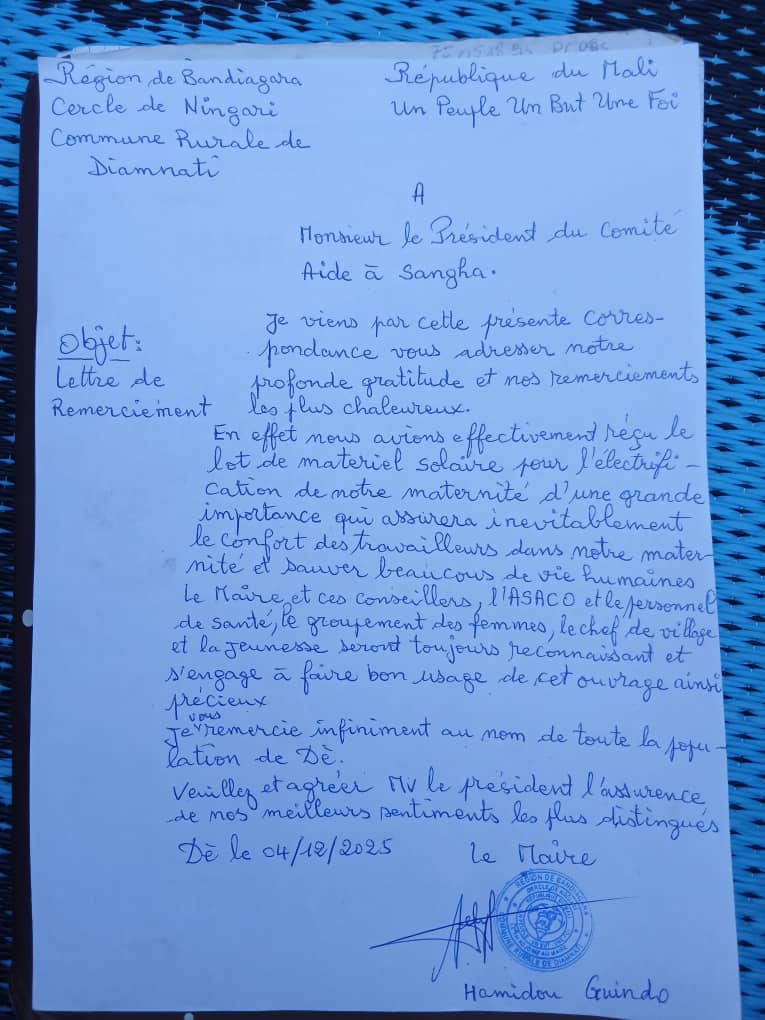 Région de Bandiagara
Cercle de Ningari
Commune Rurale de
Diamnati
République du Mali
Un Peuple Un But Une Foi
A
Monsieur le Président du Comité
Aide à Sangha.
Objet:
Lettre de
Remerciement
Je viens par cette présente corres-
pondance vous adresser notre
profonde gratitude et nos remerciements
les plus chaleureux.
En effet nous avions effectivement réçu le
lot de materiel solaire pour l'électrifi-
cation de notre maternité d'une grande
importance qui assurera inevitablement
le confort des travailleurs dans notre mater-
nité et sauver beaucous de vie humaines
Le Maire, et ces conseillers, l'ASACO et le personnel
de santé, le groupement des femmes, le chef de village
et la jeunesse seront toujours reconnaissant et
s'engage à faire bon usage de cet ouvrage ainsi
précieux
Je vous remercie infiniment au nom de toute la popu-
lation de Dè.
Veuillez et agréer Mr le président l'assurence
de nos meilleurs sentiments les plus distingués
Dè le 04/12/2025
Le Maire
REGION DE BANDIAGARA
COMMUNE RURALE DE DIAMNATI
Hamidou Guindo